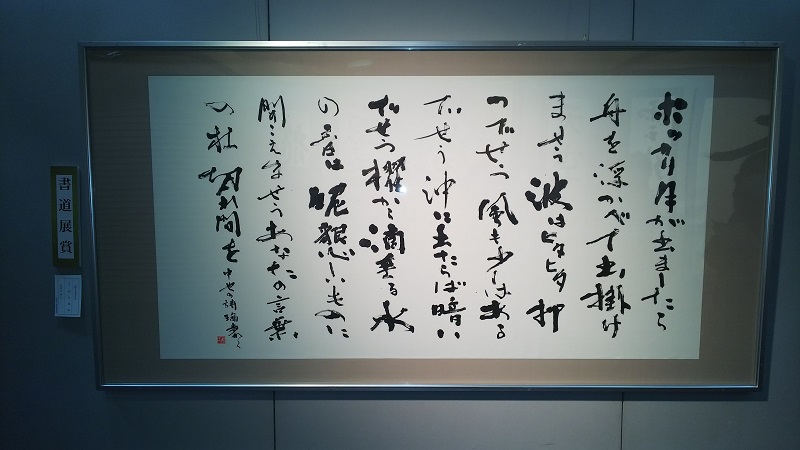 ポッカリ月が出ましたら
舟を浮かべて出掛け
ませう波はヒタヒタ打
つでせう風も少しはある
でせう沖に出たらば暗い
でせう櫂から滴垂る水
の音は昵懇しいものに
聞こえませうあなたの言葉
の杜切れ間を 中也の詩
書道展賞